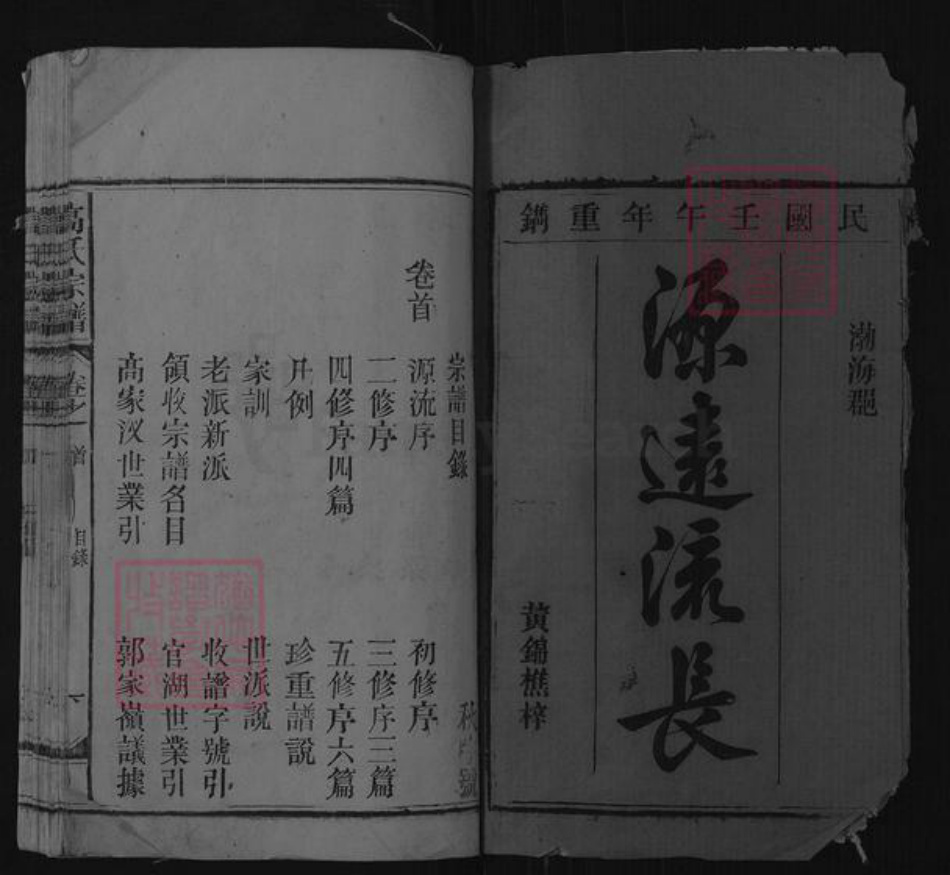 民國壬午年重鐫
渤海郡
源遠流長
黃錦樵梓
宗譜目錄
卷首
源流序 初修序
二修序 三修序三篇
四修序四篇 五修序六篇
凡例 珍重譜說
家訓 世派說
老派新派 收譜字號引
領收宗譜名目 官湖世業引
高家汊世業引 郭家嶺議據
高氏宗譜 卷之首 目錄 一